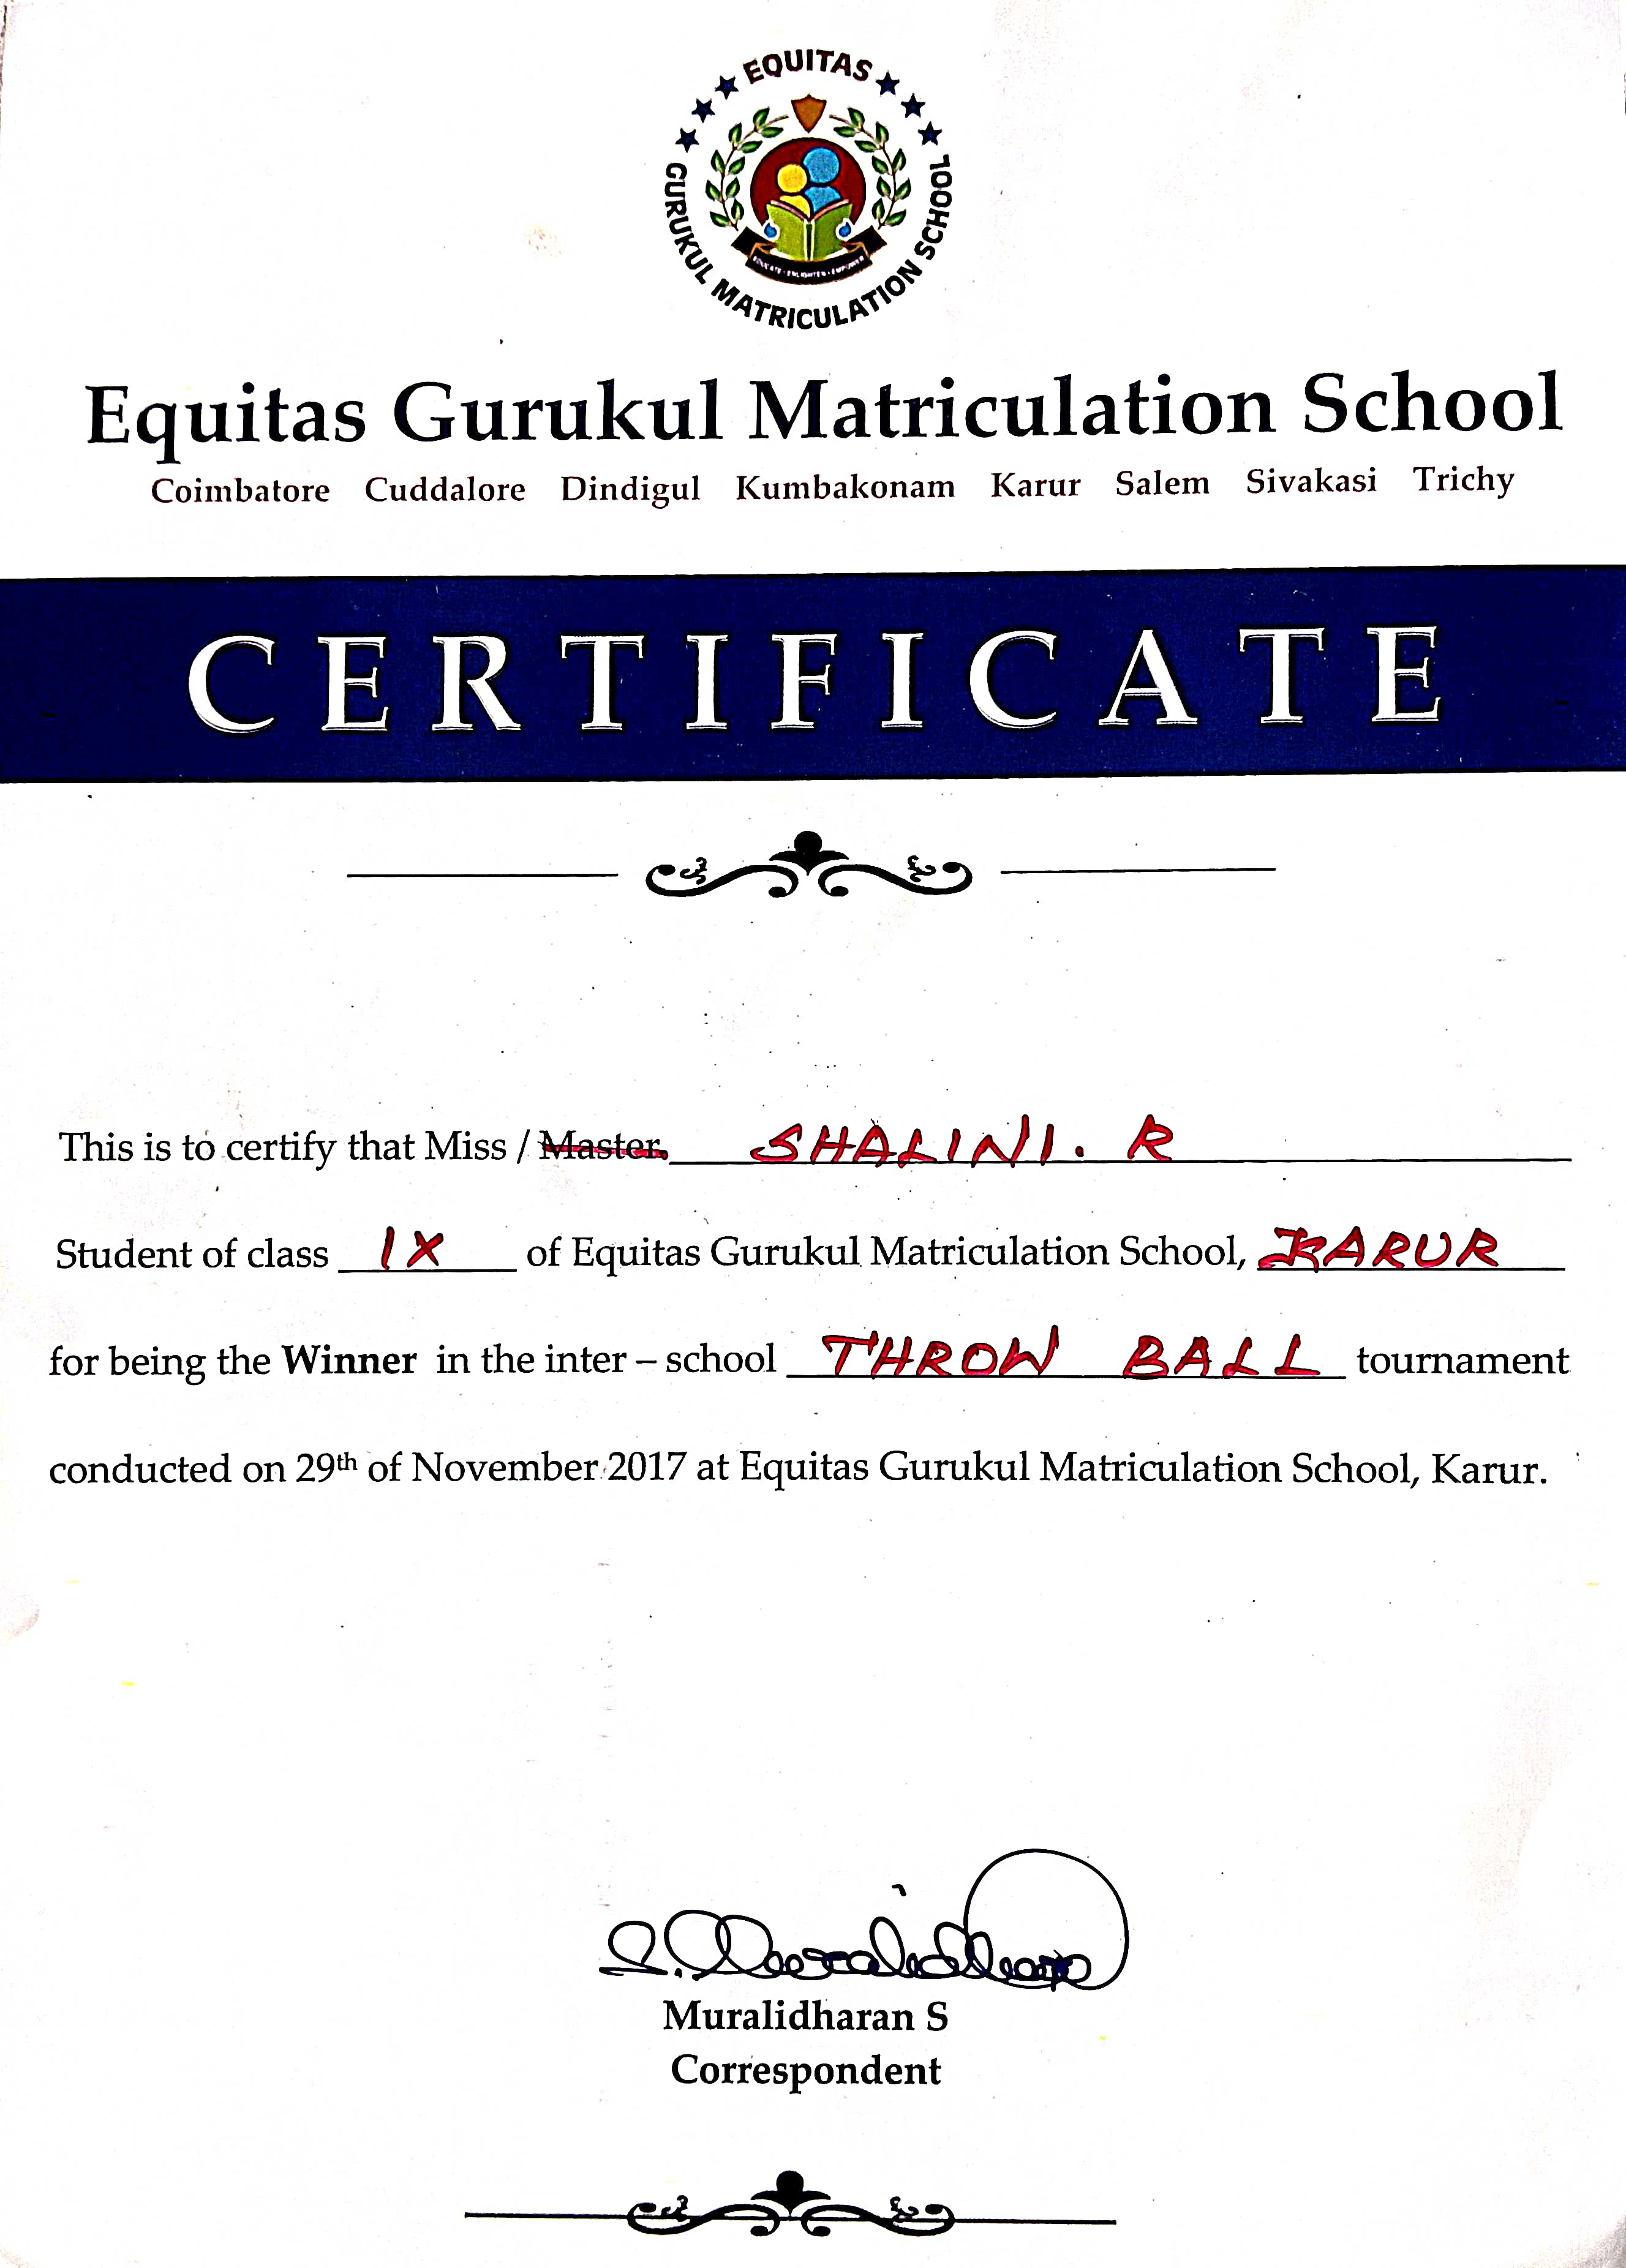 EQUITAS
GURUKUL MATRICULATION SCHOOL
Equitas Gurukul Matriculation School
Coimbatore Cuddalore Dindigul Kumbakonam Karur Salem Sivakasi Trichy
CERTIFICATE
This is to certify that Miss / Master. SHALINI. R
Student of class IX of Equitas Gurukul Matriculation School, KARUR
for being the Winner in the inter – school THROW BALL tournament
conducted on 29th of November 2017 at Equitas Gurukul Matriculation School, Karur.
S. Muralidharan
Muralidharan S
Correspondent